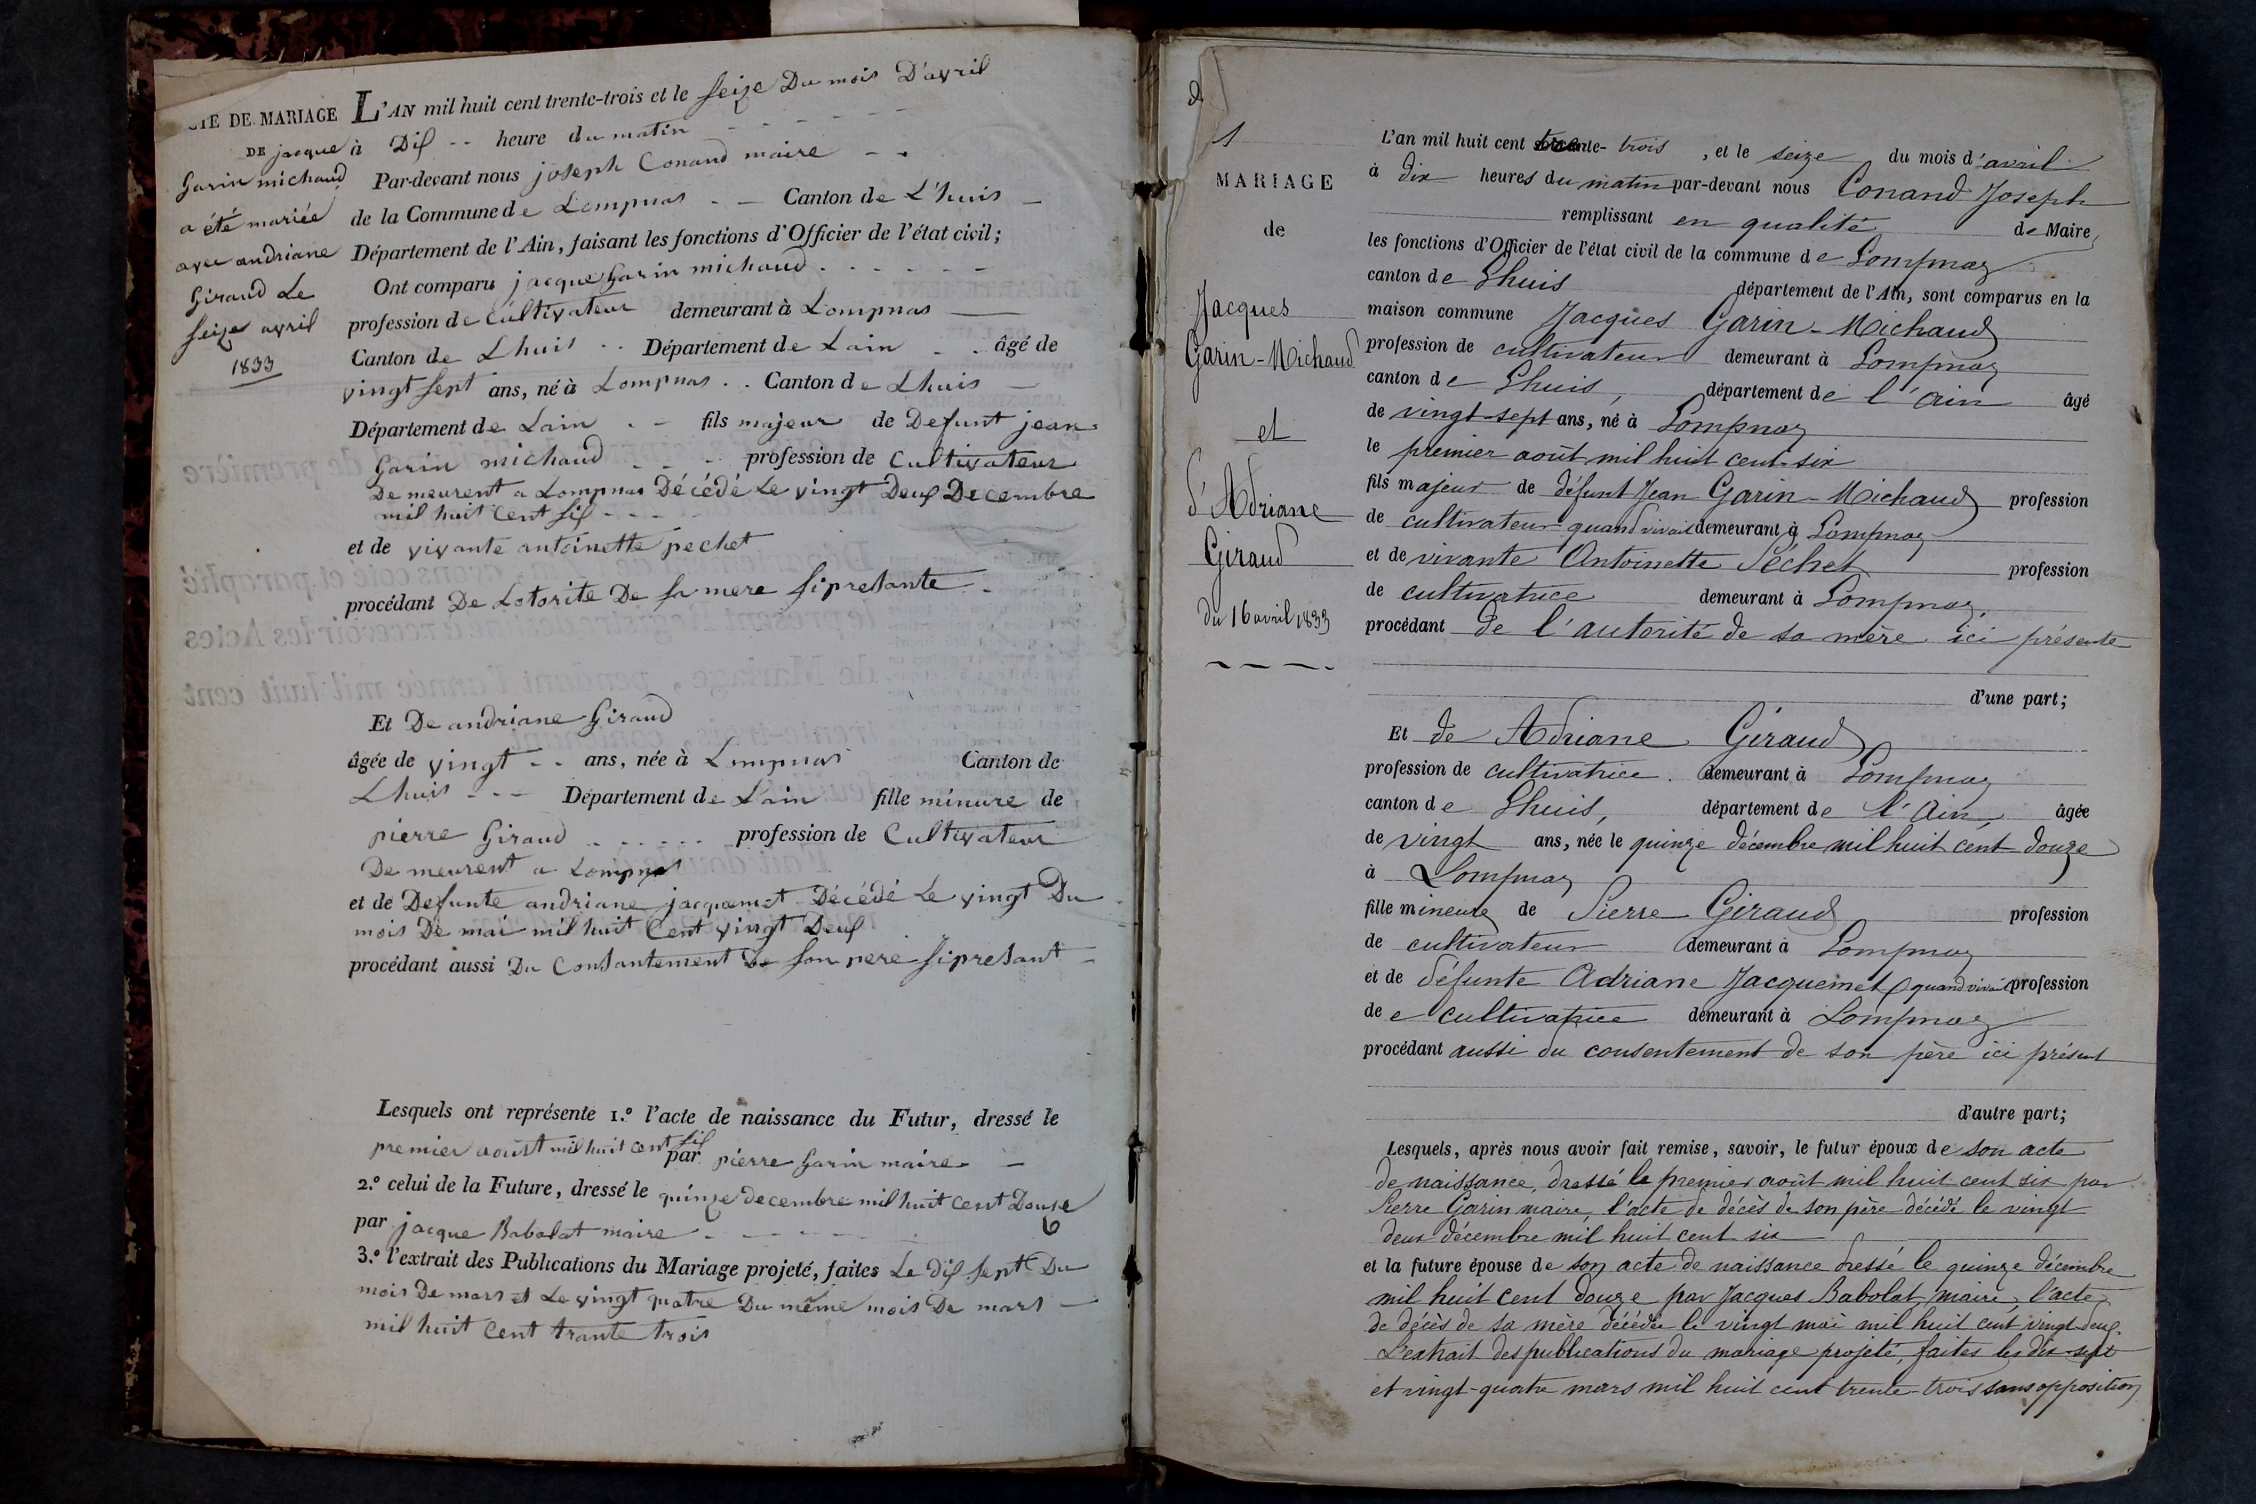 ACTE DE MARIAGE
DE jacque
Garin michaud
a été mariée
avec andriane
Giraud Le
seize avril
1833
L'AN mil huit cent trente-trois et le seize Du mois D'avril
à Dix -- heure du matin - - - - -
Par-devant nous joseph Conand maire - -
de la Commune de Lompnas - - Canton de L'huis -
Département de l'Ain, faisant les fonctions d'Officier de l'état civil;
Ont comparu jacque Garin michaud . - - - - -
profession de Cultivateur demeurant à Lompnas -
Canton de Lhuis - - Département de Lain - - âgé de
vingt sept ans, né à Lompnas . . Canton de Lhuis -
Département de Lain . - fils majeur de Defunt jean
Garin michaud - - - profession de Cultivateur
De meurent a Lompnas Décédé Le vingt Deux Decembre
mil huit Cent six - - - -
et de vivante antoinette pechet
procédant De Lotorite De sa mere si presante -
Et De andriane Giraud
âgée de vingt - - ans, née à Lompnas Canton de
Lhuis - - - Département de Lain fille minure de
pierre Giraud . . . . . . profession de Cultivateur
De meurent a Lompnas
et de Defunte andriane jacquemet Décédé Le vingt Du
mois De mai mil huit Cent vingt Deux
procédant aussi Du Consantement De son pere si presant -
Lesquels ont représente 1.º l'acte de naissance du Futur, dressé le
premier aoust mil huit cent six par pierre Garin maire - -
2.º celui de la Future, dressé le quinze decembre mil huit Cent Douze
par jacque Babolat maire - - - - - -
3.º l'extrait des Publications du Mariage projeté, faites Le dix sept Du
mois De mars et Le vingt quatre Du même mois De mars -
mil huit Cent trante trois
1
MARIAGE
de
Jacques
Garin-Michaud
et
d'Adriane
Giraud
du 16 avril 1833
L'an mil huit cent trente-trois, et le seize du mois d'avril
à dix heures du matin par-devant nous Conand Joseph
remplissant en qualité de Maire,
les fonctions d'Officier de l'état civil de la commune de Lompnaz
canton de Lhuis département de l'Ain, sont comparus en la
maison commune Jacques Garin-Michaud
profession de cultivateur demeurant à Lompnaz
canton de Lhuis, département de l'Ain âgé
de vingt-sept ans, né à Lompnaz
le premier août mil huit cent six
fils majeur de défunt Jean Garin-Michaud profession
de cultivateur quand vivait demeurant à Lompnaz
et de vivante Antoinette Péchet profession
de cultivatrice demeurant à Lompnaz,
procédant de l'autorité de sa mère ici présente
d'une part;
Et de Adriane Giraud
profession de cultivatrice. demeurant à Lompnaz
canton de Lhuis, département de l'Ain, âgée
de vingt ans, née le quinze décembre mil huit cent douze
à Lompnaz
fille mineure de Pierre Giraud profession
de cultivateur demeurant à Lompnaz
et de défunte Adriane Jacquemet quand vivait profession
de e cultivatrice demeurant à Lompnaz
procédant aussi du consentement de son père ici présent
d'autre part;
Lesquels, après nous avoir fait remise, savoir, le futur époux de son acte
de naissance, dressé le premier août mil huit cent six par
Pierre Garin maire, l'acte de décès de son père décédé le vingt
deux décembre mil huit cent six
et la future épouse de son acte de naissance dressé le quinze décembre
mil huit cent douze par Jacques Babolat, maire, l'acte
de décès de sa mère décédée le vingt mai mil huit cent vingt deux.
L'extrait des publications du mariage projeté, faites les dix-sept
et vingt-quatre mars mil huit cent trente-trois sans opposition